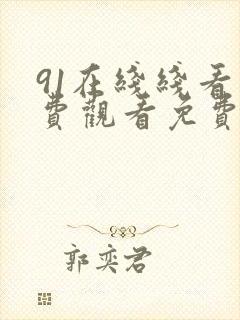 91在綫綫看
費觀看免費
郭奕君